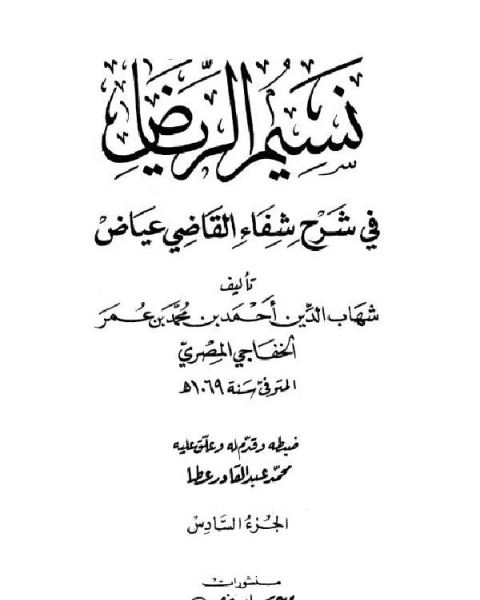 نَسِيمُ الرِّيَاضِ
في شَرْحِ شِفَاءِ القَاضِي عيَاضْ
تأليف
شهَاب الدِّين أحْمَد بن محمَّد بن عُمَر
الخفَاجي المصْريّ
المتوفىّ سَنة ١٠٦٩ه
ضبطه وقدّم له وعلّق عليه
محمّد عبد القادر عطا
الجزءُ السَّادسْ
منشورات